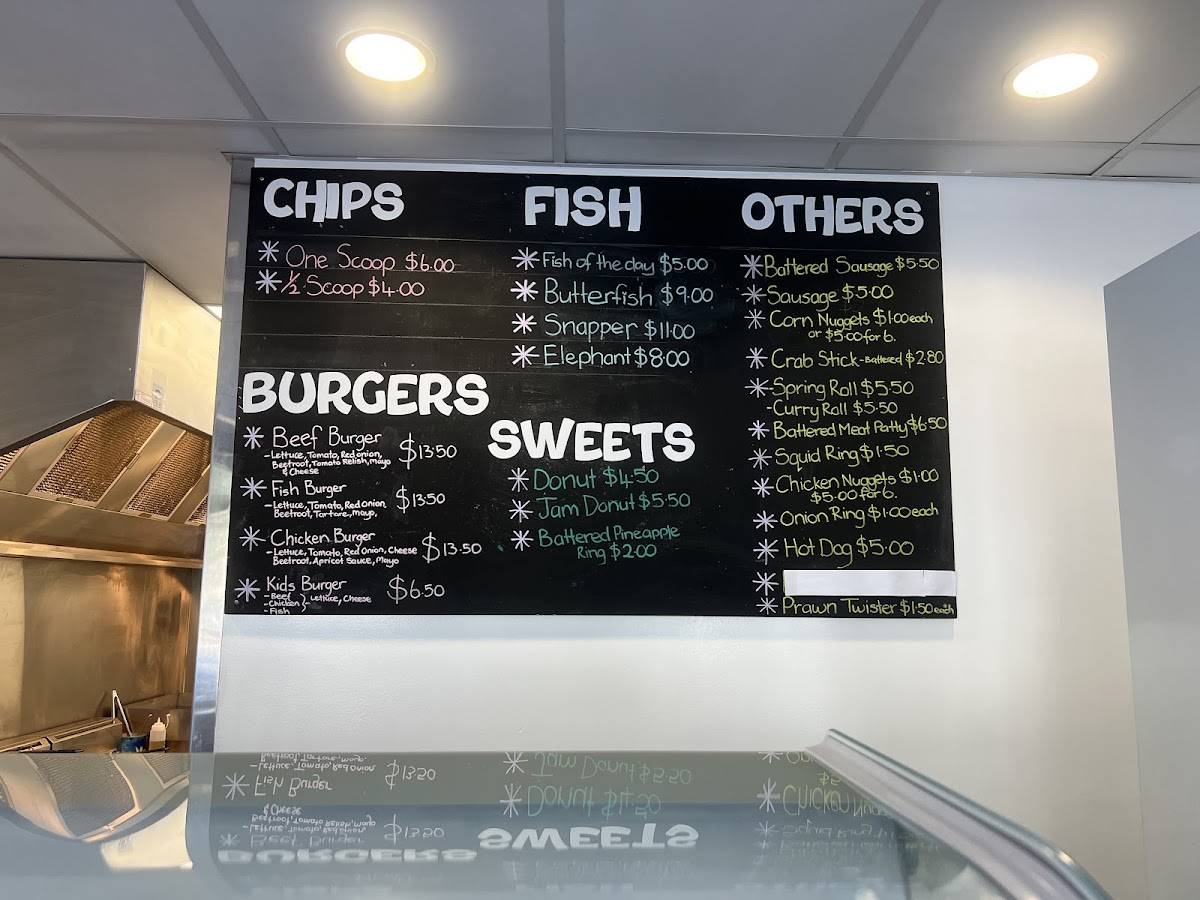 CHIPS
* One Scoop $6.00
* ½ Scoop $4.00
BURGERS
* Beef Burger $13.50
- Lettuce, Tomato, Red onion,
Beetroot, Tomato Relish, mayo
& Cheese
* Fish Burger $13.50
- Lettuce, Tomato, Red Onion
Beetroot, Tartare, mayo,
* Chicken Burger $13.50
- Lettuce, Tomato, Red Onion, Cheese
Beetroot, Apricot Sauce, Mayo
* Kids Burger $6.50
- Beef
- Chicken } - Lettuce, Cheese
- Fish
FISH
* Fish of the day $5.00
* Butterfish $9.00
* Snapper $11.00
* Elephant $8.00
SWEETS
* Donut $4.50
* Jam Donut $5.50
* Battered Pineapple
Ring $2.00
OTHERS
* Battered Sausage $5.50
* Sausage $5.00
* Corn Nuggets $1.00 each
or $5.00 for 6.
* Crab Stick - Battered $2.80
* - Spring Roll $5.50
- Curry Roll $5.50
* Battered Meat Patty $6.50
* Squid Ring $1.50
* Chicken Nuggets $1.00
$5.00 for 6.
* Onion Ring $1.00 each
* Hot Dog $5.00
*
* Prawn Twister $1.50 each